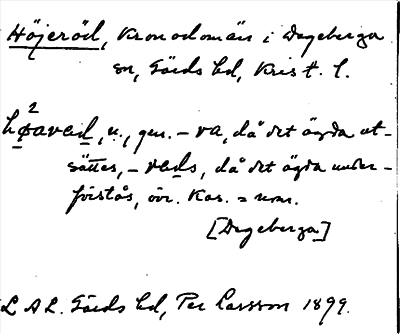 Höjeröd, Kronodomän i Degeberga
sn, Gärds hd, Krist. l.
hø²avad, n., gen. -va, då det ägda ut-
sättes, -vads, då det ägda under-
förstås, övr. kas. = nom.
[Degeberga]
LAL. Gärds hd, Per Larsson 1899.